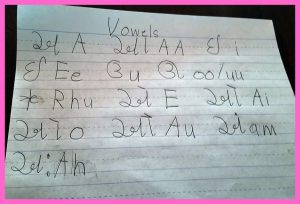 Vowels
અ A આ AA ઇ i
ઈ Ee ઉ u ઊ oo/uu
* Rhu એ E ઐ Ai
ઓ o ઔ Au અં am
અઃ Ah